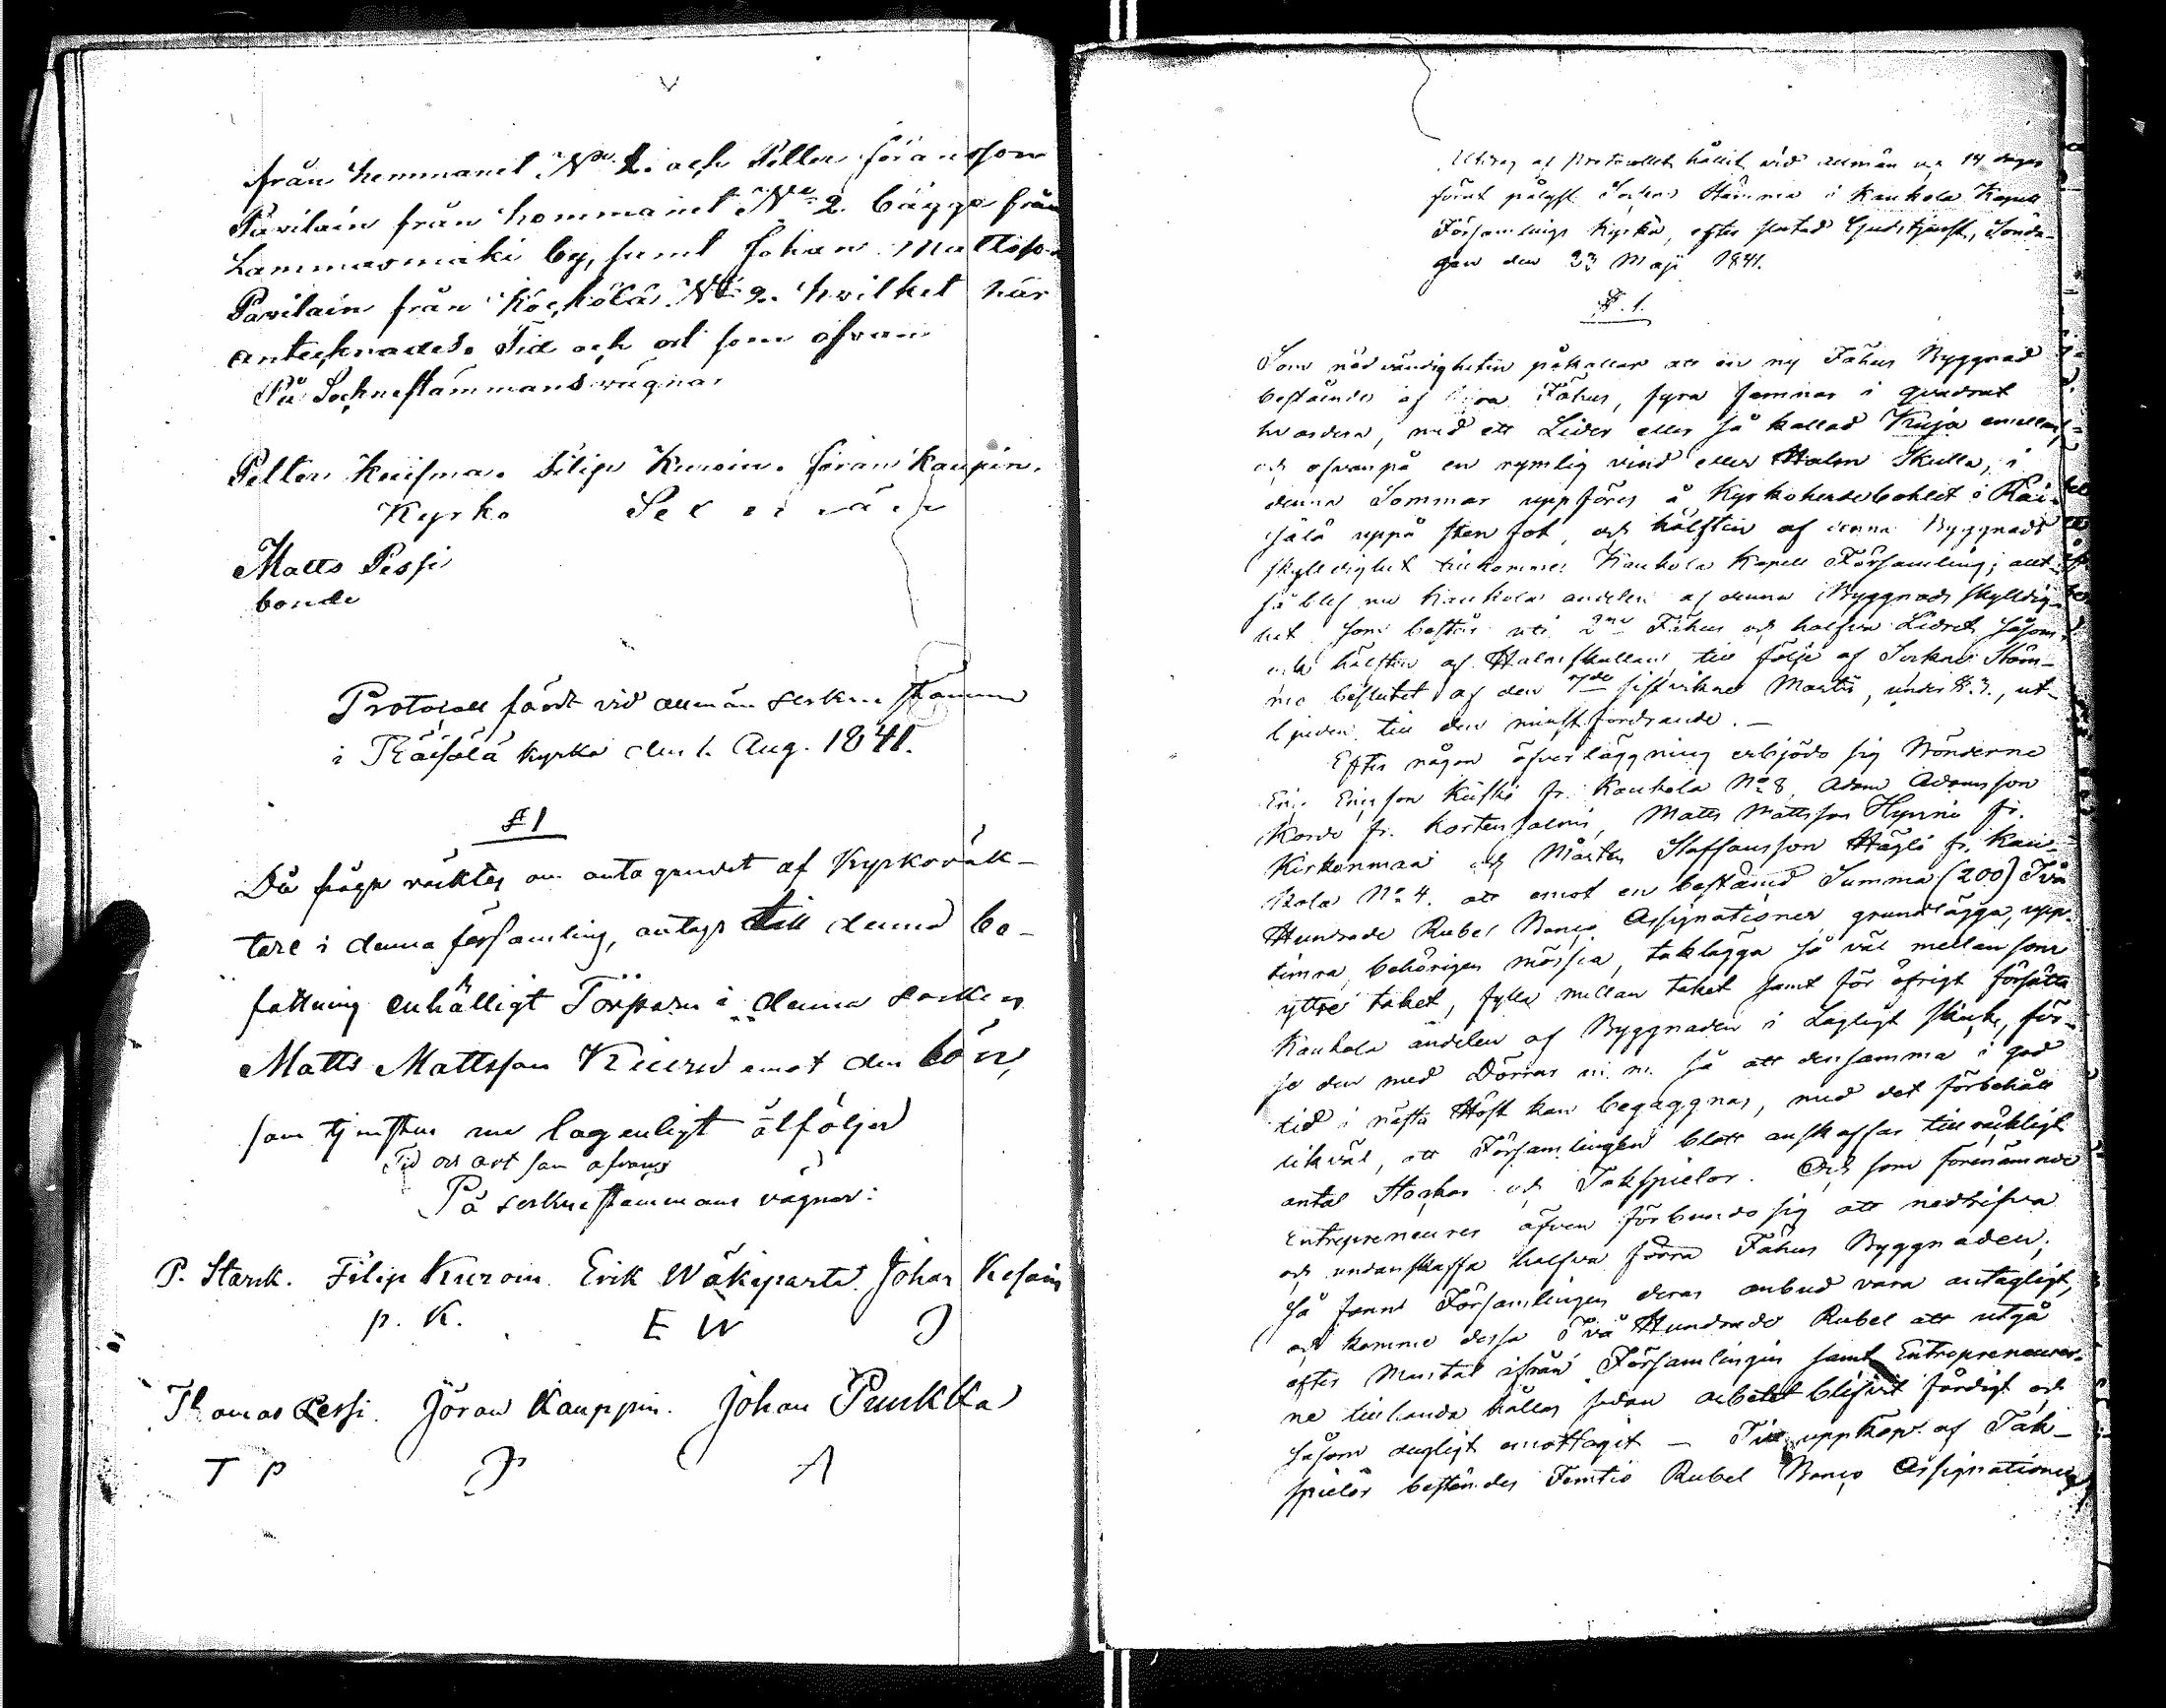 från hemmanet No 1. och Petter Göransson
Pavilain från hemmanet No 2. bägge från
Lammasmäki by, samt Johan Mattsson
Pavilain från Köckölä No 2. hvilket här
antecknades. Tid och ort som ofvan
På Sockneståmmans vägnar
Petter Kuisma. Filip Kuroin. Göran Kaupin.
Kyrko Sexmän
Matts Pessi
bonde
Protocoll fördt vid allmän sockne stämma
i Räisälä kyrka den 1. Aug. 1841.
§ 1
Då fråga väcktes om antagandet af Kyrkoväk-
tare i denna församling, antogs till denna be-
fattning enhälligt Torparn i denna socken
Matts Mattsson Kiuru emot den lön,
som tjensten nu lagenligt åtföljer
Tid och ort som ofvan
På sockneståmmans vägnar:
P. Stark. Filip Kuroin. Erik Wäkiparta. Johan Kesain
p. K. E W J
Thomas Pessi. Jöran Kauppin. Johan Pukka
T P
Utdrag af Protocollet hållit vid allmän och 14 dagar
förut pålyst Sockne Stämma i Kaukola Kapell
Församlings Kyrka, efter slutad Gudstjenst, Sönda-
gen den 23 Maji 1841.
§. 1.
Som nödvändigheten påkallar att en ny Fähus Byggnad
bestående af fyra Fähus, fyra famnar i quadrat
hvardera, med ett Lider eller så kallad Kuja emellan,
och ofvanpå en rymlig vind eller Halm Skulla, i
denna Sommar uppföres å Kyrkoherdebohlet i Räi-
sälä uppå sten fot, och hälften af denna Byggnads
skylldighet tillkommer Kaukola Kapell Församling; allt-
så blef nu Kaukola andelen af denna Byggnads skylldig-
het som består uti 2ne Fähus och halfva Lidret såsom
ock hälften af Halmskullan till följe af Sockne Stäm-
mo beslutet af den 7de sistvikne Martii, under §. 3., ut-
bjuden till den minst fordrande. —
Efter någon öfverläggning erbjödo sig Bönderne
Eric Ericsson Kiiski fr. Kaukola No 8, Adam Adamsson
Korvo fr. Kortensalmi, Matts Mattsson Hynni fr.
Kirkonmaa och Mårten Staffansson Hägli fr. Kau-
kola No 4. att emot en bestämd Summa (200) Två
Hundrade Rubel Banco Assignationer, grundlägga, upp-
timra, behörigen måssia, taklägga så väl mellan som
yttre taket, fylla mellan taket samt för öfrigt försätta
Kaukola andelen af Byggnaden i Lagligt skick, för-
se den med Dörrar m. m. så att densamma i god
tid i nästa Höst kan begagnas, med det förbehåll
likväl, att Församlingen blott anskaffar tillräckligt
antal Stockar och Takspielor. Och som förenämnde
Entrepreneurer äfven förbundo sig att nedrifva
och undanskaffa halfva förra Fähus Byggnaden;
så fann Församlingen deras anbud vara antagligt,
och komme dessa Två Hundrade Rubel att utgå
efter Mantal ifrån Församlingen samt Entrepreneurer-
ne tillhanda hållas sedan arbetet blifvit färdigt och
såsom dugligt emottagit — Till uppköp af Tak-
spielor bestämdes Femtio Rubel Banco Assignationer